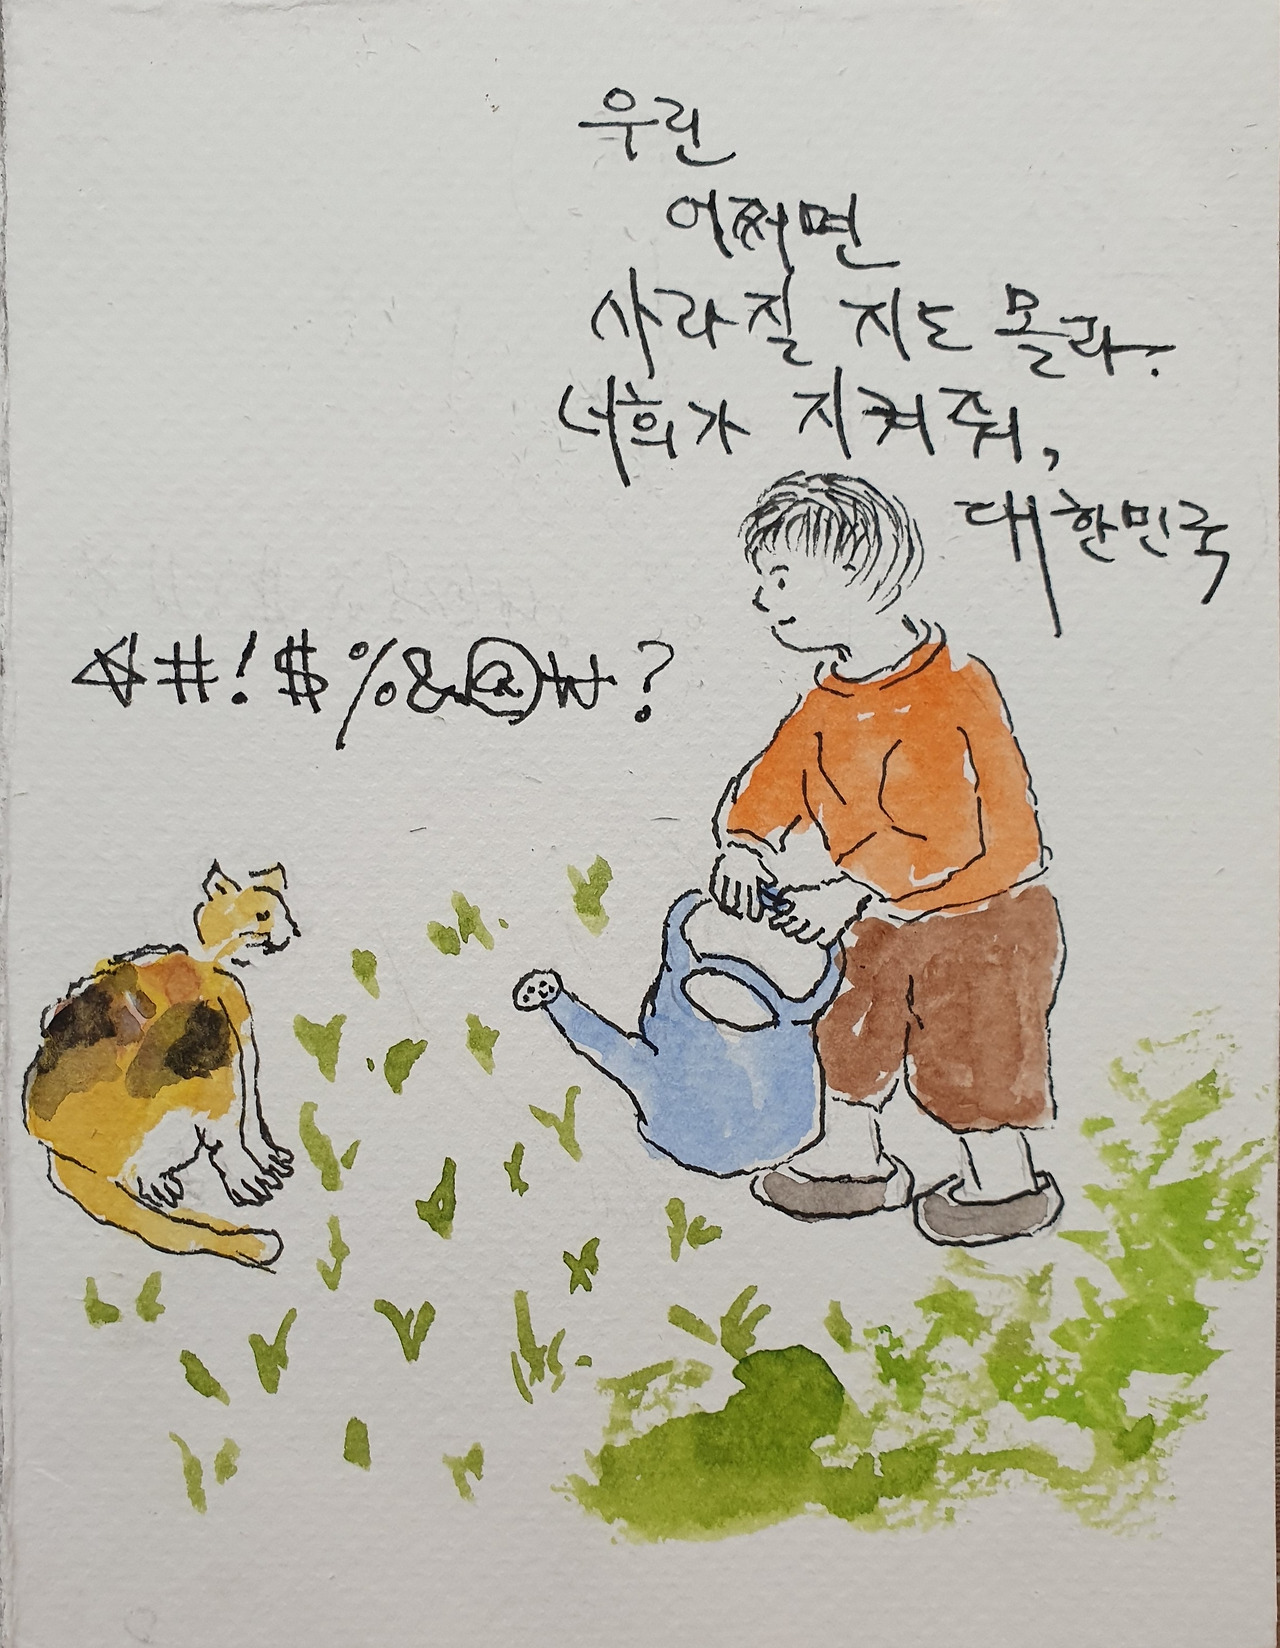 우린
어쩌면
사라질 지도 몰라.
너희가 지켜줘,
대한민국
#!$%&@₩?